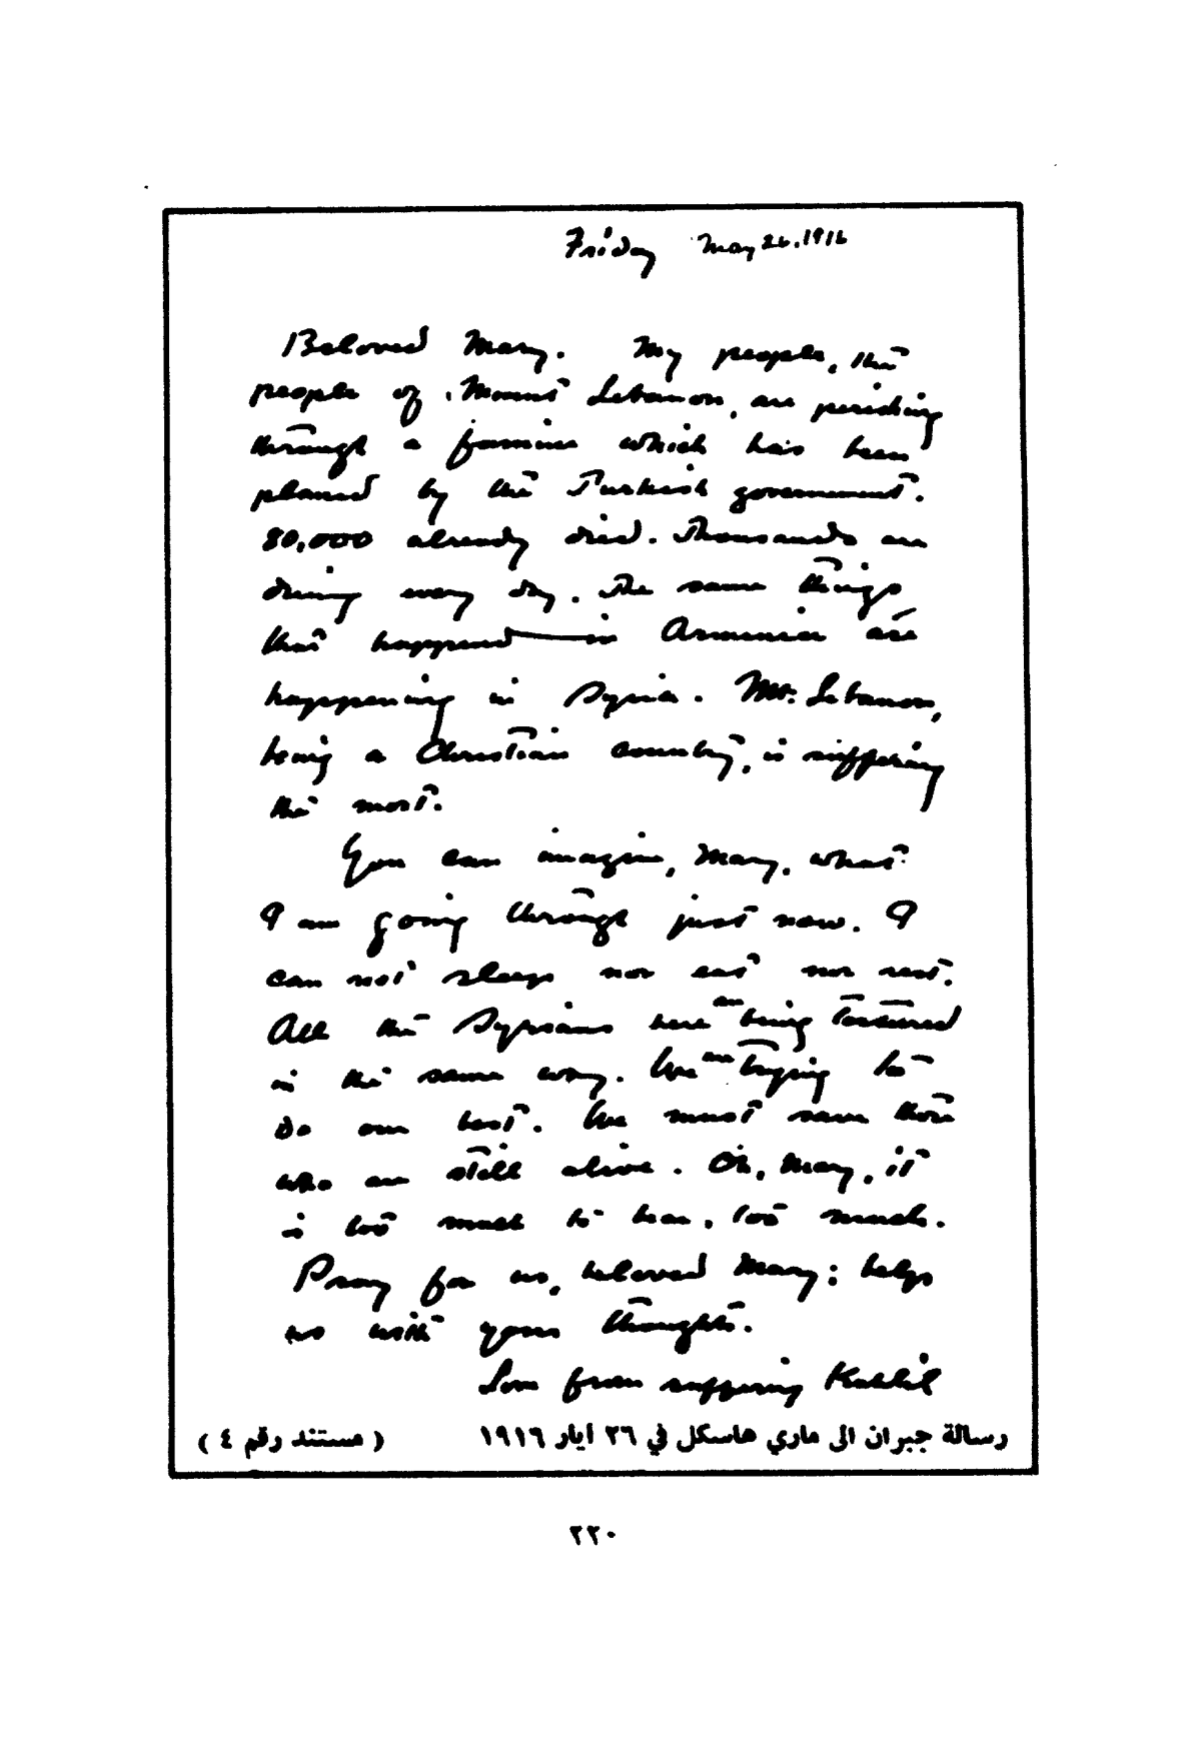 Friday May 26. 1916
Beloved Mary. My people, the
people of Mount Lebanon, are perishing
through a famine which has been
planned by the Turkish government.
80,000 already died. Thousands are
dying every day. The same things
that happened in Armenia are
happening in Syria. Mt. Lebanon,
being a Christian country, is suffering
the most.
You can imagine, Mary, what
I am going through just now. I
can not sleep nor eat nor rest.
All the Syrians here are being tortured
in the same way. We are trying to
do our best. We must save those
who are still alive. Oh, Mary, it
is too much to bear, too much.
Pray for us, beloved Mary: help
us with your thoughts.
Love from suffering Kahlil
رسالة جبران الى ماري هاسكل في ٢٦ أيار ١٩١٦ (مستند رقم ٤)
٢٢٠